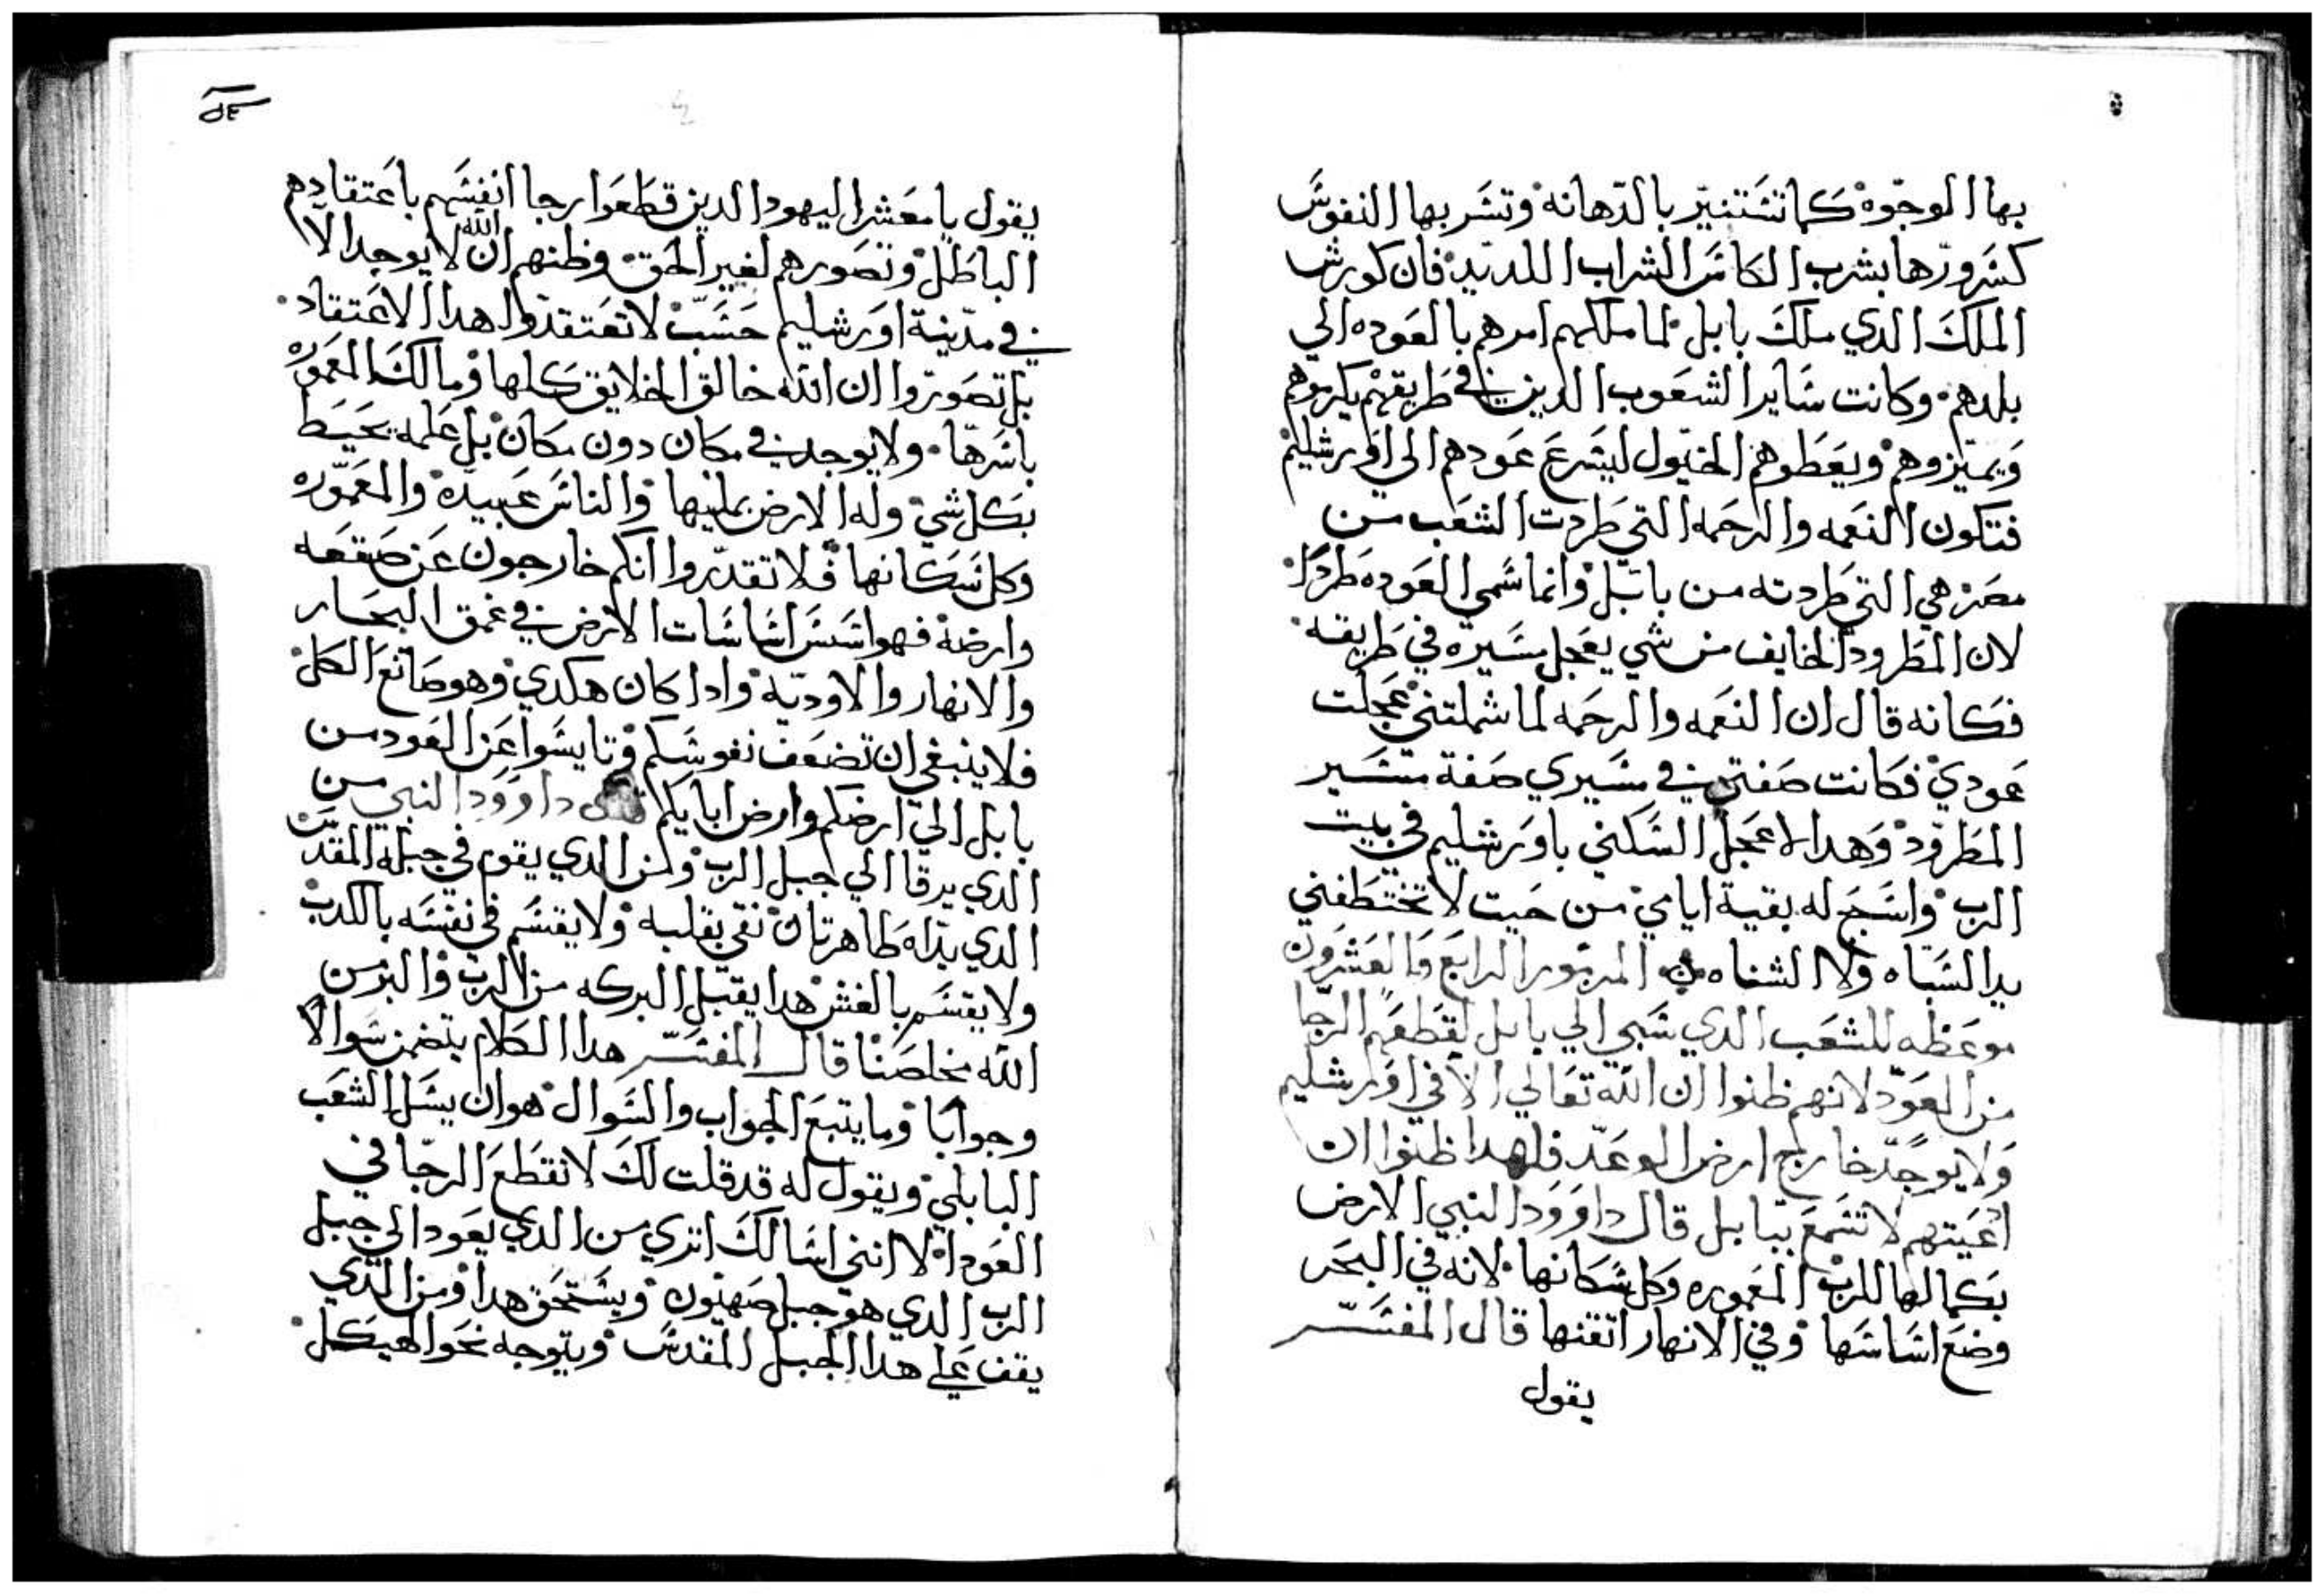 بها الوجوه كما تستنير بالدهانه وتسر بها النفوس
كسرورها بشرب الكاس الشراب اللديد فان كورش
الملك الدي ملك بابل لما ملكهم امرهم بالعوده الي
بلدهم وكانت ساير الشعوب الدين في طريقهم يكرموهم
ويميزوهم ويعطوهم الخيول ليسرع عودهم الي اورشليم
فتكون النعمه والرحمه التي طردت الشعب من
مصر هي التي طردته من بابل وانما سمي العوده طردا
لان المطرود الخايف من شي يعجل مسيره في طريقه
فكانه قال ان النعمه والرحمه لما شملتني عجلت
عودي فكانت صفتي في مسيري صفة متسير
المطرود وهدا لاعجل السكني باورشليم في بيت
الرب واسبح له بقية ايامي من حيت لا تختطفني
يد السباه ولا الشناه المزمور الرابع والعشرون
موعظه للشعب الدي سبي الي بابل لقطعهم الرجا
من العود لانهم ظنوا ان الله تعالي الا في اورشليم
ولا يوجد خارج ارض الوعد فلهدا ظنوا ان
ادعيتهم لا تسمع ببابل قال داوود النبي الارض
بكمالها للرب المعموره وكل سكانها لانه في البحر
وضع اساسها وفي الانهار اتقنها قال المفسر
يقول
يقول يا معشر اليهود الدين قطعوا رجا انفسهم باعتقادهم
الباطل وتصورهم لغير الحق وظنهم ان الله لا يوجد الا
في مدينة اورشليم حسب لا تعتقدوا هدا الاعتقاد
بل تصوروا ان الله خالق الخلايق كلها ومالك المعموره
باسرها ولا يوجد في مكان دون مكان بل علمه يحيط
بكل شي وله الارض بمليها والناس عبيده والمعموره
وكل سكانها فلا تقدروا انكم خارجون عن صقعه
وارضه فهو اسس اساسات الارض في عمق البحار
والانهار والاوديه وادا كان هكدي وهو صانع الكل
فلا ينبغي ان تضعف نفوسكم وتايسوا عن العود من
بابل الي ارضكم وارض ابايكم قال داوود النبي من
الدي يرقا الي جبل الرب ومن الدي يقوم في جبله المقدس
الدي يداه طاهرتان نقي بقلبه ولا يقسم في نفسه بالكدب
ولا يقسم بالغش هدا يقبل البركه من الرب والبر من
الله مخلصنا قال المفسر هدا الكلام يتضمن سوالا
وجوابا وما يتبع الجواب والسوال هو ان يسل الشعب
البابلي ويقول له قد قلت لك لا تقطع الرجا في
العود الا انني اسالك اتري من الدي يعود الي جبل
الرب الدي هو جبل صهيون ويستحق هدا ومن الدي
يقف علي هدا الجبل المقدس ويتوجه نحو الهيكل